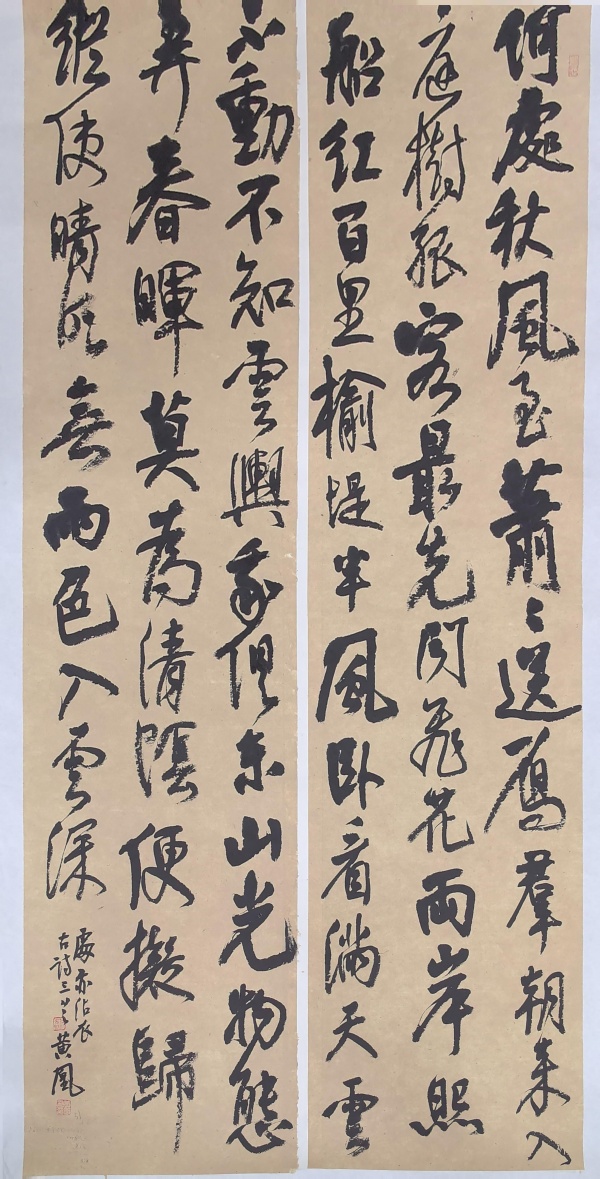 何處秋風至蕭〻送鴈羣朝來入
庭樹孤客最先聞飛花兩岸照
船紅百里榆堤半風臥看滿天雲
不動不知雲與我俱東山光物態
弄春暉莫為清陰便擬歸
縱使晴明無雨色入雲深
處亦沾衣
古詩三首 黃